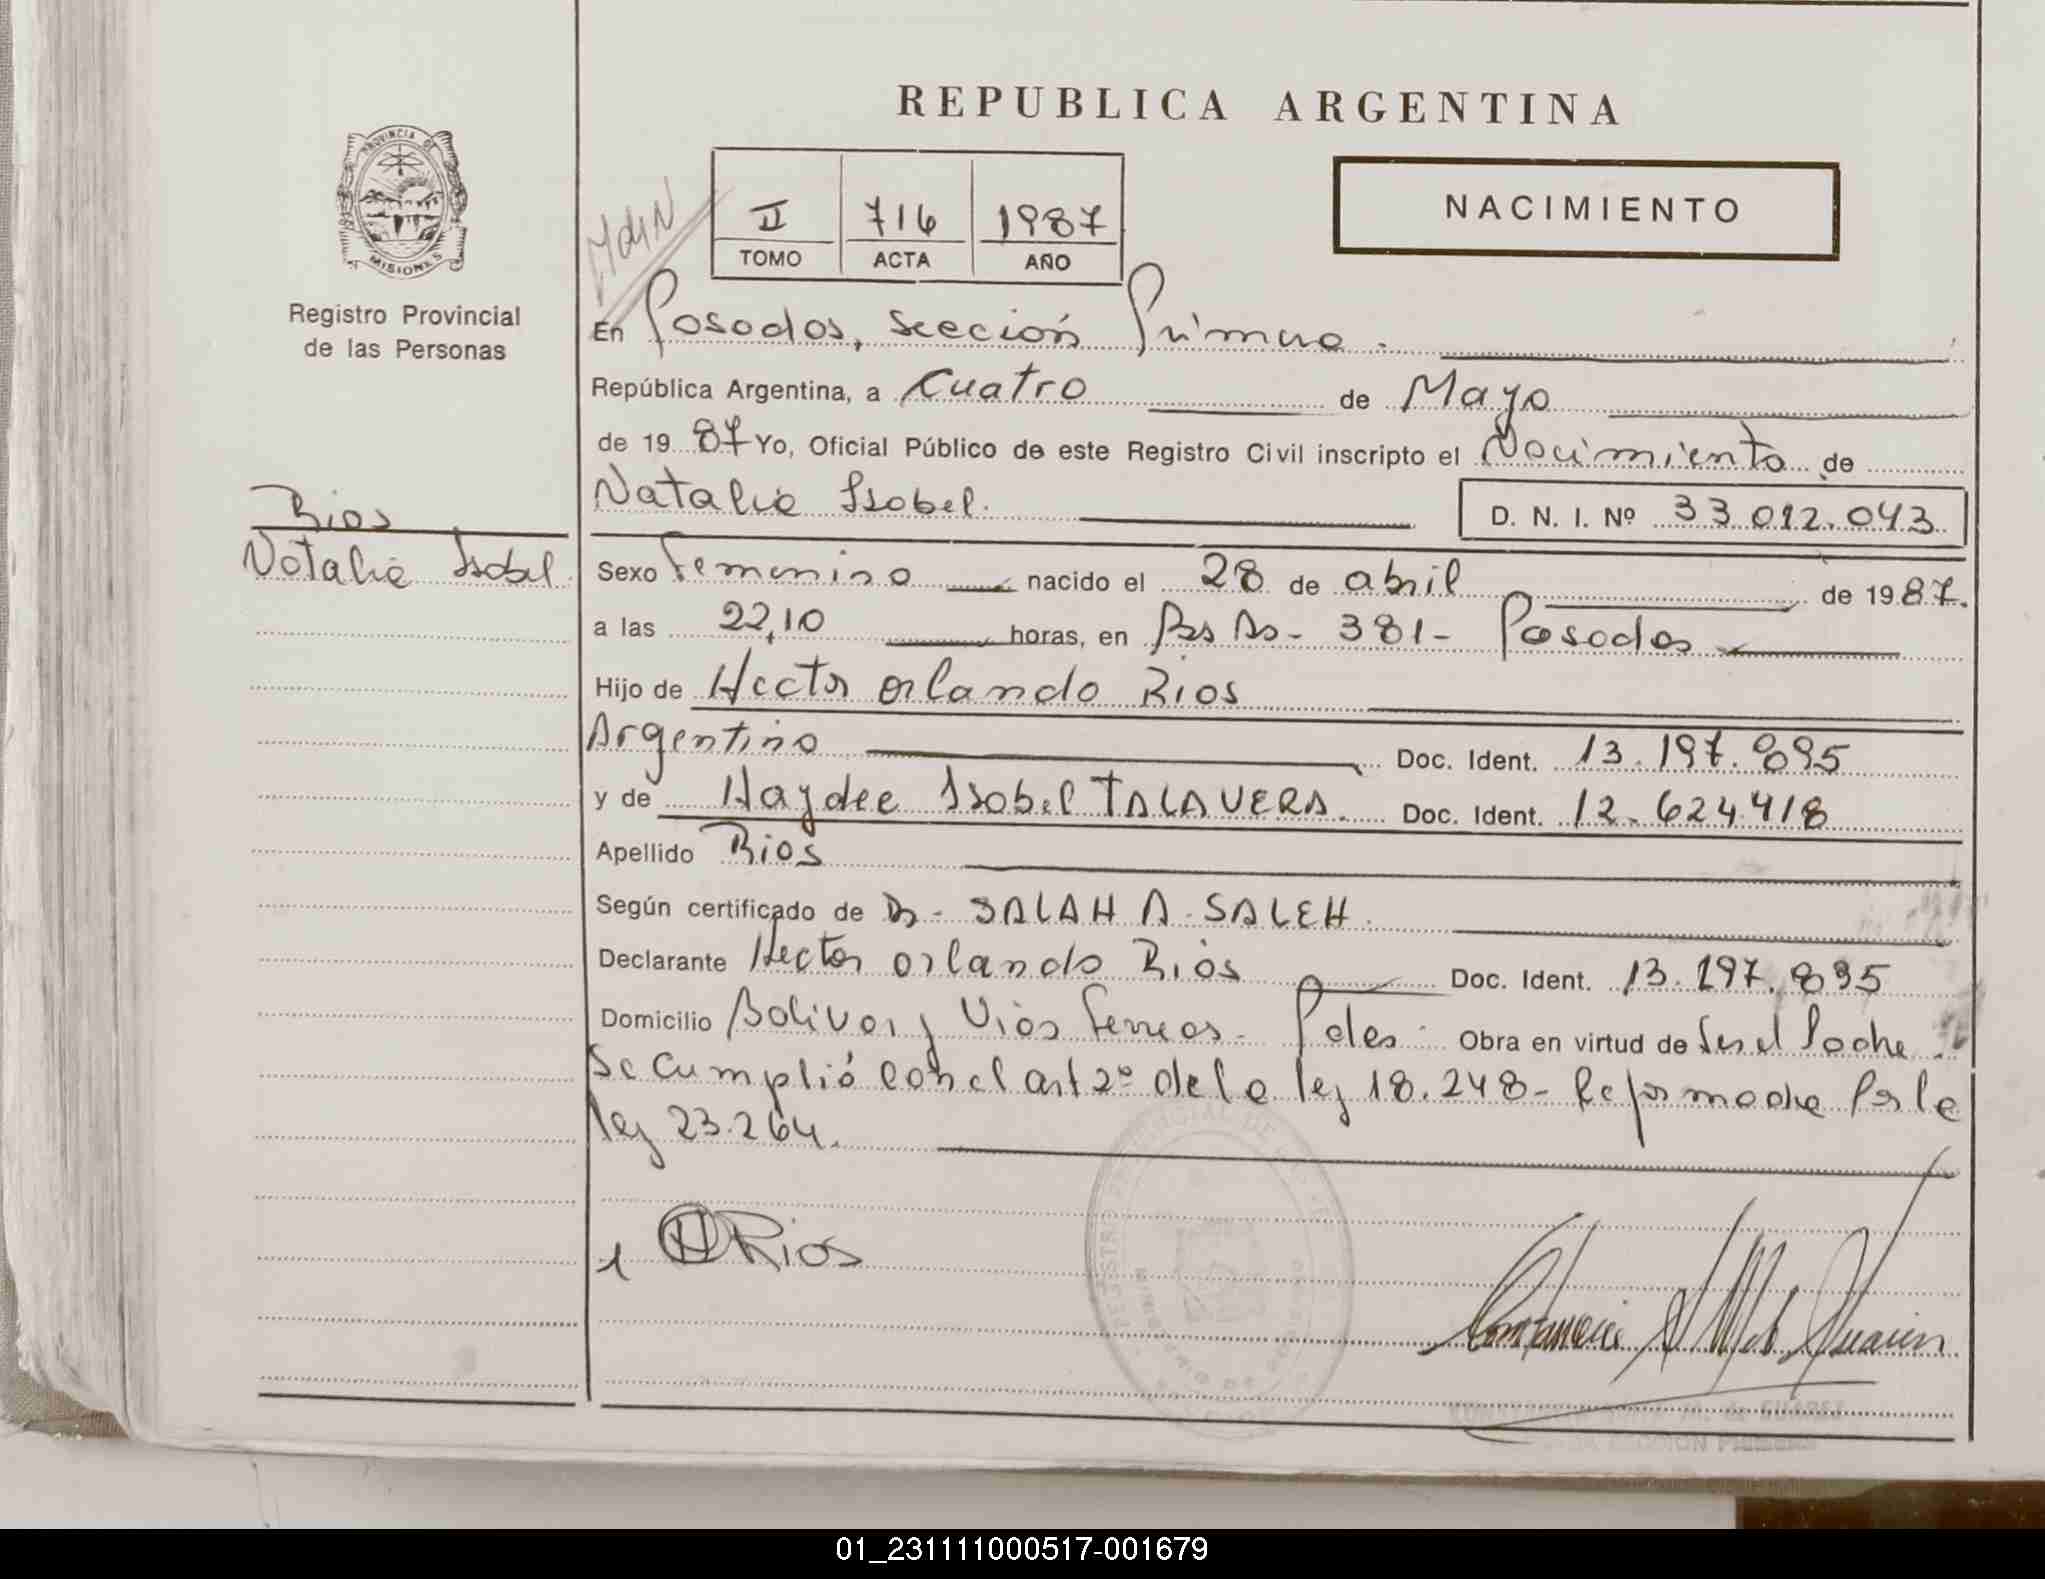 REPUBLICA ARGENTINA
PROVINCIA DE
MISIONES
Registro Provincial
de las Personas
II 716 1987
TOMO ACTA AÑO
NACIMIENTO
En Posadas, sección Primera.
República Argentina, a Cuatro de Mayo
de 1987 Yo, Oficial Público de este Registro Civil inscripto el Nacimiento de
Rios
Natalia Isabel
Natalia Isabel. D. N. I. Nº 33.012.043
Sexo Femenino nacido el 28 de abril de 1987.
a las 22,10 horas, en Bs As - 381 - Posadas
Hijo de Hector Orlando Rios
Argentino Doc. Ident. 13.197.895
y de Haydee Isabel TALAVERA. Doc. Ident. 12.624.418
Apellido Rios
Según certificado de Dr. SALAH A. SALEH.
Declarante Hector Orlando Rios Doc. Ident. 13.197.895
Domicilio Bolivar y Vias Ferreas. Pdas. Obra en virtud de Ser el Padre.
Se cumplió con el art 2º de la ley 18.248 - Reformada Por la
ley 23.264.
H Rios
01_231111000517-001679